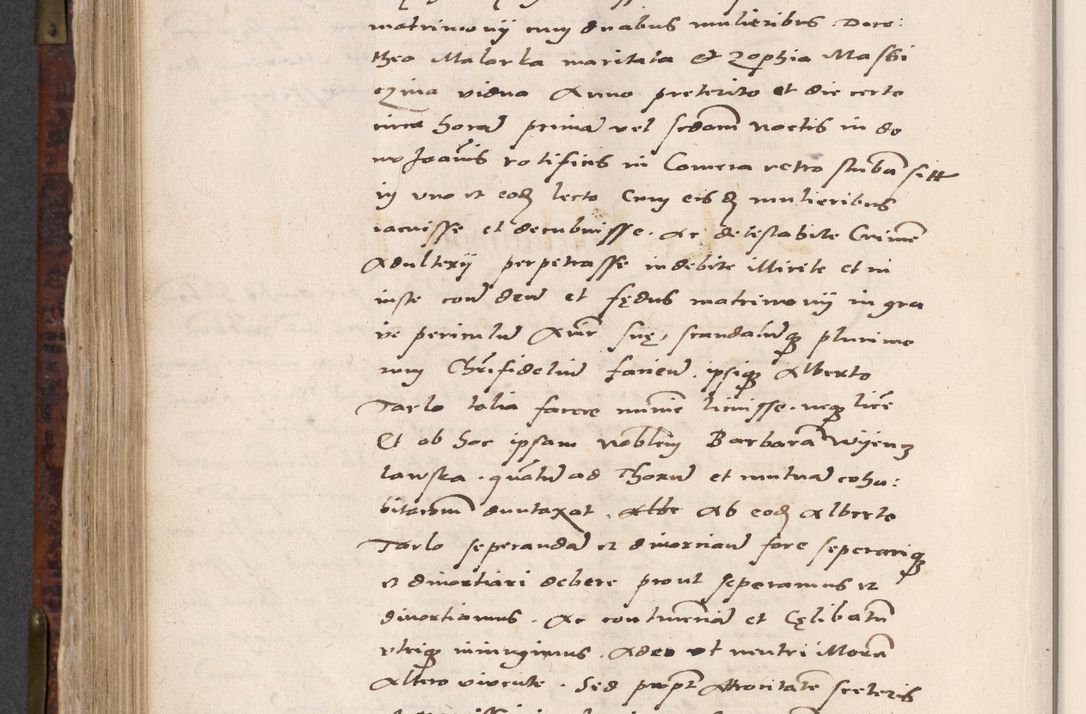 matrimonij cum duabus mulieribus Doro:
thea Malarka maritata Et Zophia Massi
czina vidua Anno preterito et die certo
circa horā primā vel sedam noctis in do
mo Joānis rotificis in Comera retro stubā sitt
in uno et eodē lecto Cum eisdē mulieribus
iacuisse et decubuisse. Ac detestabile Crimē
Adulterij perpetrasse indebite illicite et in
iuste contrā deū et fędus matrimonij in gra
ve periculū Aīe suę, scandalūq plurimo
rum Chrīfideliū faciens. ipsiq Alberto
Tarlo talia facere minime licuisse. neq licē
Et ob hoc ipsam Noblem Barbarā Wijenz
lawska. quātū ad Thorū et mutuā coha:
bitacionem duntaxat. Ab eodē Alberto
Tarlo seperandā et divorciandā fore seperariq
et divortiari debere prout seperamus et
divortiamus. Ac continenciā et Cęlibatū
utriq iniungimus. Adeo ut neutri illorū
Altero vivente. Sed propt Atrocitatē sceleris